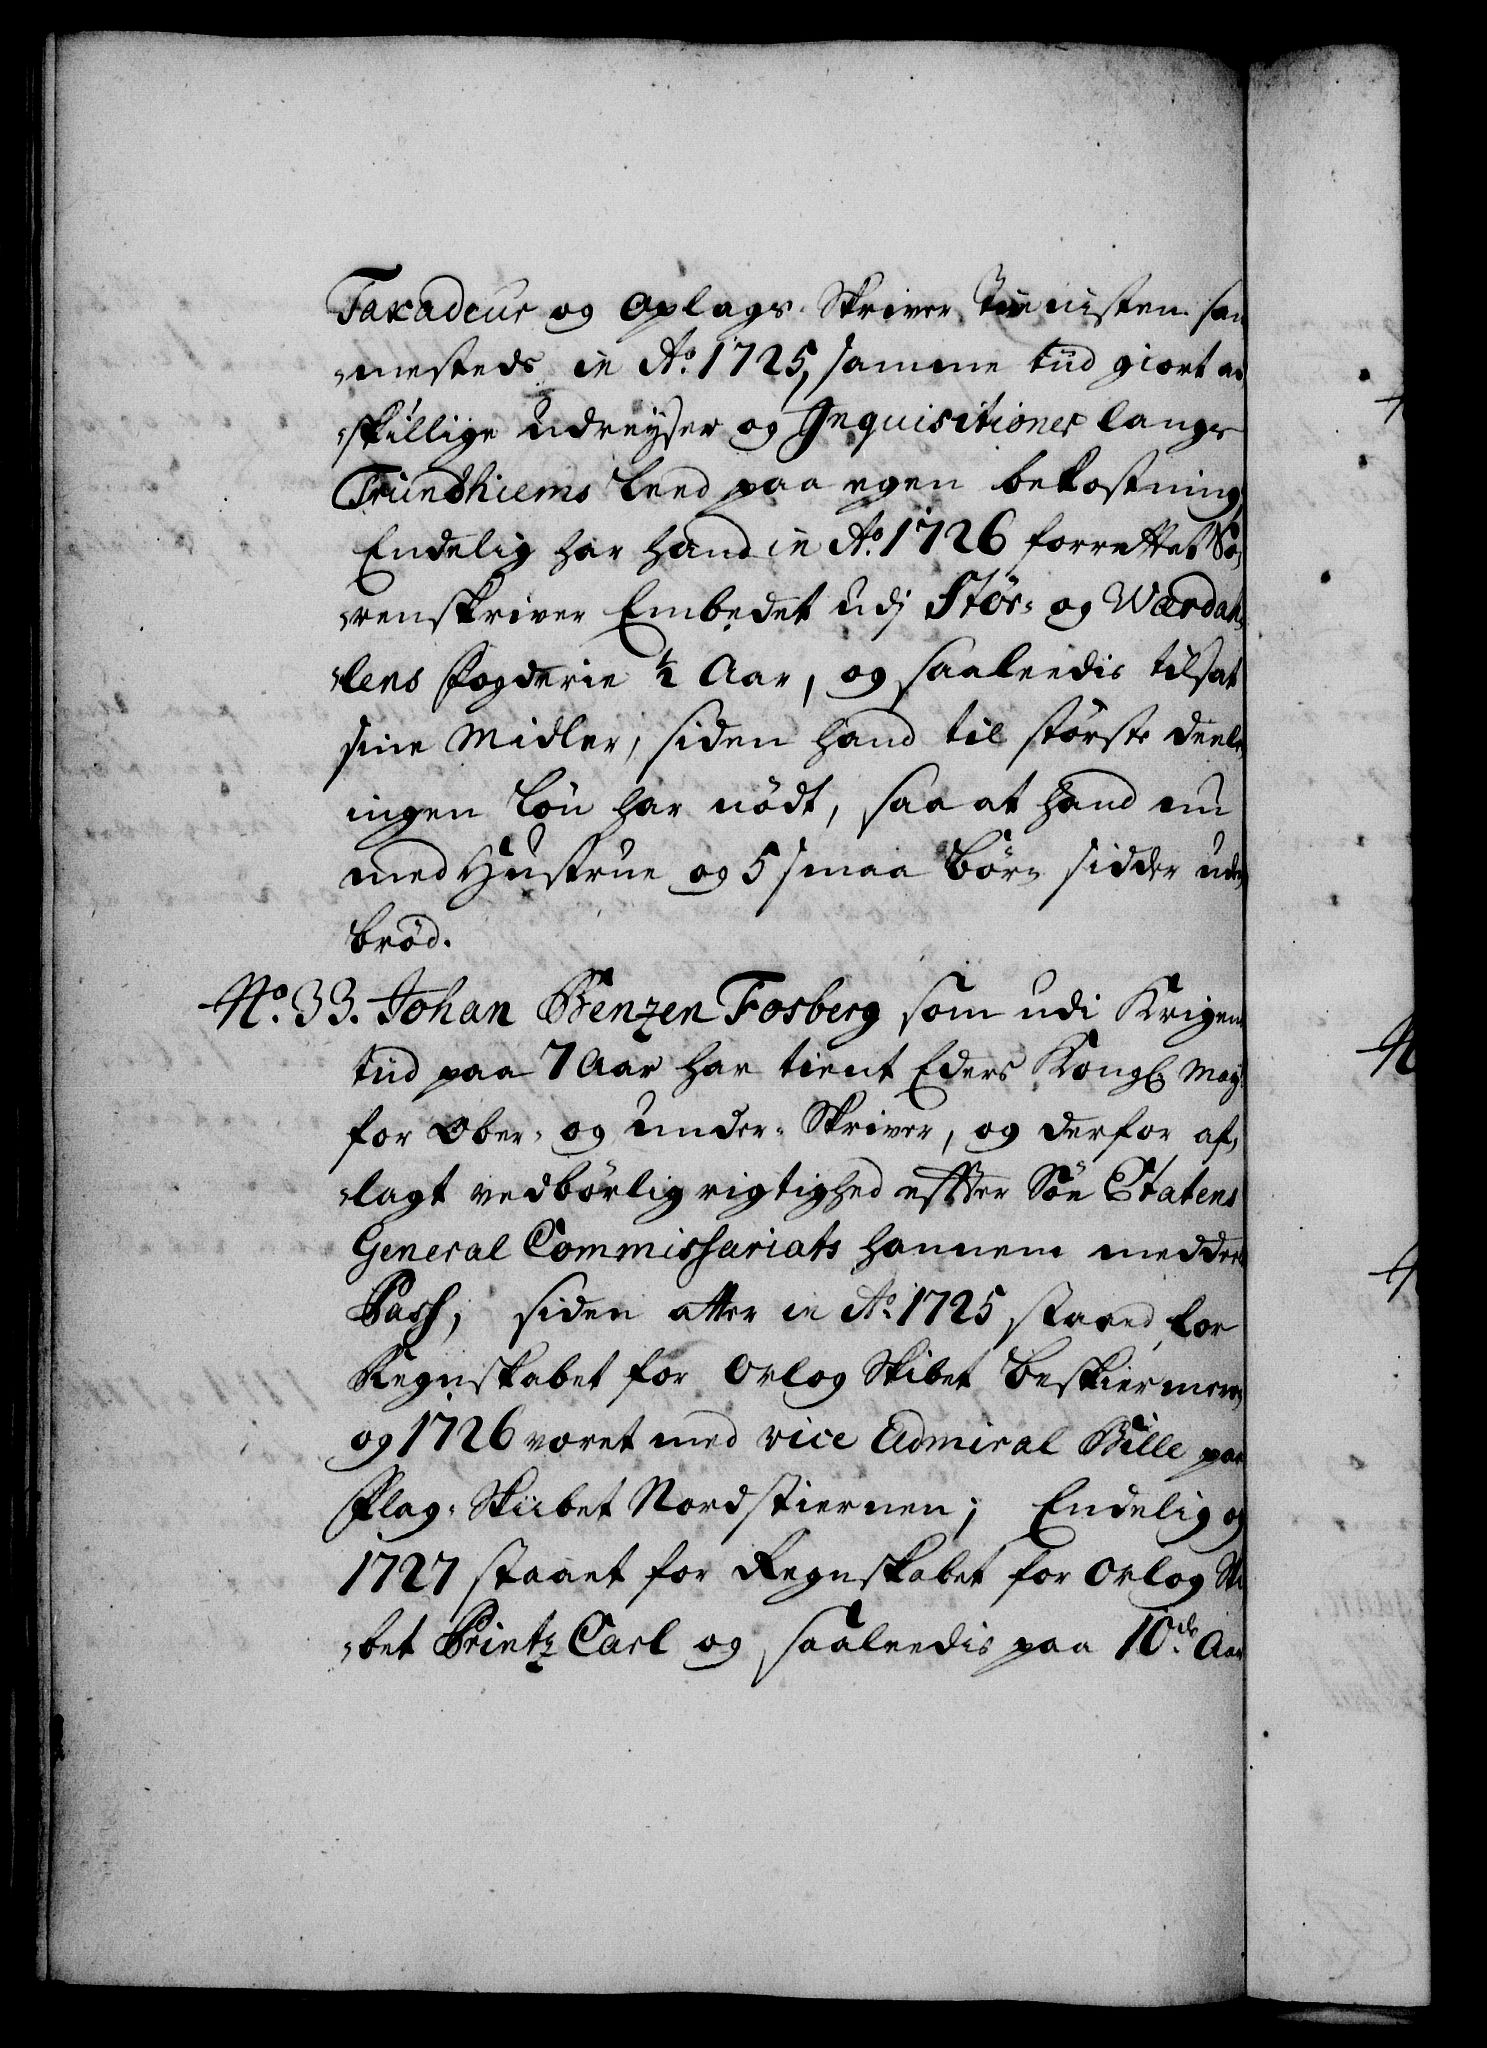 Taxadeur og Oplags-Skriver tienisten sam
mesteds in Aō. 1725, samme tiid giort ad
skillige Udreyser og Inquisitioner langs
Trundhiems Leed paa egen bekostning,
Endelig har hand in Aō. 1726 forrettet So¬
renskriver Embedet udj Stör- og Wærdah
lens Fogderie ½ Aar, og saaleedis tilsat
sine Midler, siden hand til störste deele
ingen Lön har nödt, saa at hand nu
med Hustrue og 5 smaa Börn sidder uden
bröd.
No. 33. Johan Benzen Fosberg som udi Krigens
tiid paa 7 Aar har tient Eders Kongl. May:
for Ober- og under-Skriver, og derfor af¬
lagt vedbörlig rigtighed effter Söe Etatens
General Commissariats hannem meddeelte
Pass, siden atter in Aō. 1725 staaed for
Regnskabet for Orlog Skibet Beskiermeren
og 1726 voret med vice Admiral Bille paa
Flag-Skiibet Nordstiernen; Endelig og
1727 staaet for Regnskabet for Orlog Ski
bet Printz Carl og saaleedis paa 10de Aar